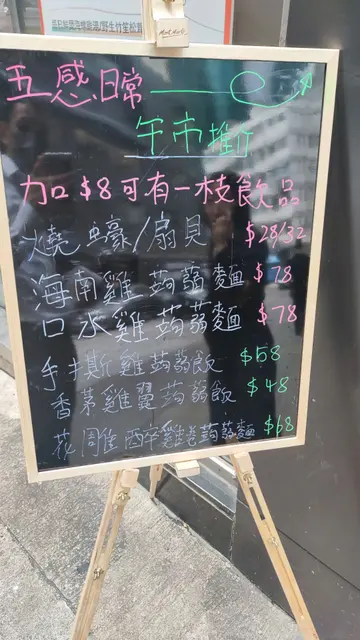 五感日常
午市推介
加$8可有一枝飲品
燒蠔/扇貝 $28/32
海南雞蒟蒻麵 $78
口水雞蒟蒻麵 $78
手撕雞蒟蒻飯 $58
香茅雞翼蒟蒻飯 $48
花雕醉雞卷蒟蒻麵 $68